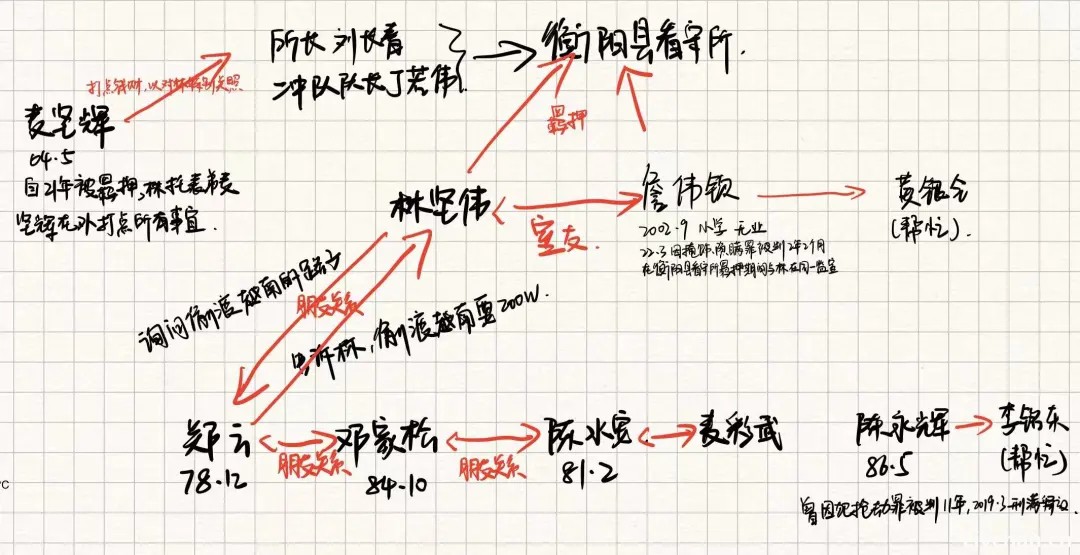 所长 刘长春
二中队队长丁若伟
衡阳县看守所.
打点钱财,以对林特别关照
麦坚辉
04.5
自21年被羁押,林托表弟麦
坚辉在外打点所有事宜.
羁押
林坚伟
室友.
詹伟钦
2002.9 小学 无业
22.3因掩饰、隐瞒罪被判2年2个月
在衡阳县看守所羁押期间与林在同一监室
黄银合
(帮忙).
询问偷渡越南的路子
朋友关系
告诉林,偷渡越南要200W.
郑云
78.12
朋友关系
邓家松
84.10
朋友关系
陈水宽
81.2
麦彩武
陈永辉
86.5
李锦东
(帮忙)
曾因犯抢劫罪被判11年,2019.3刑满释放.
°C